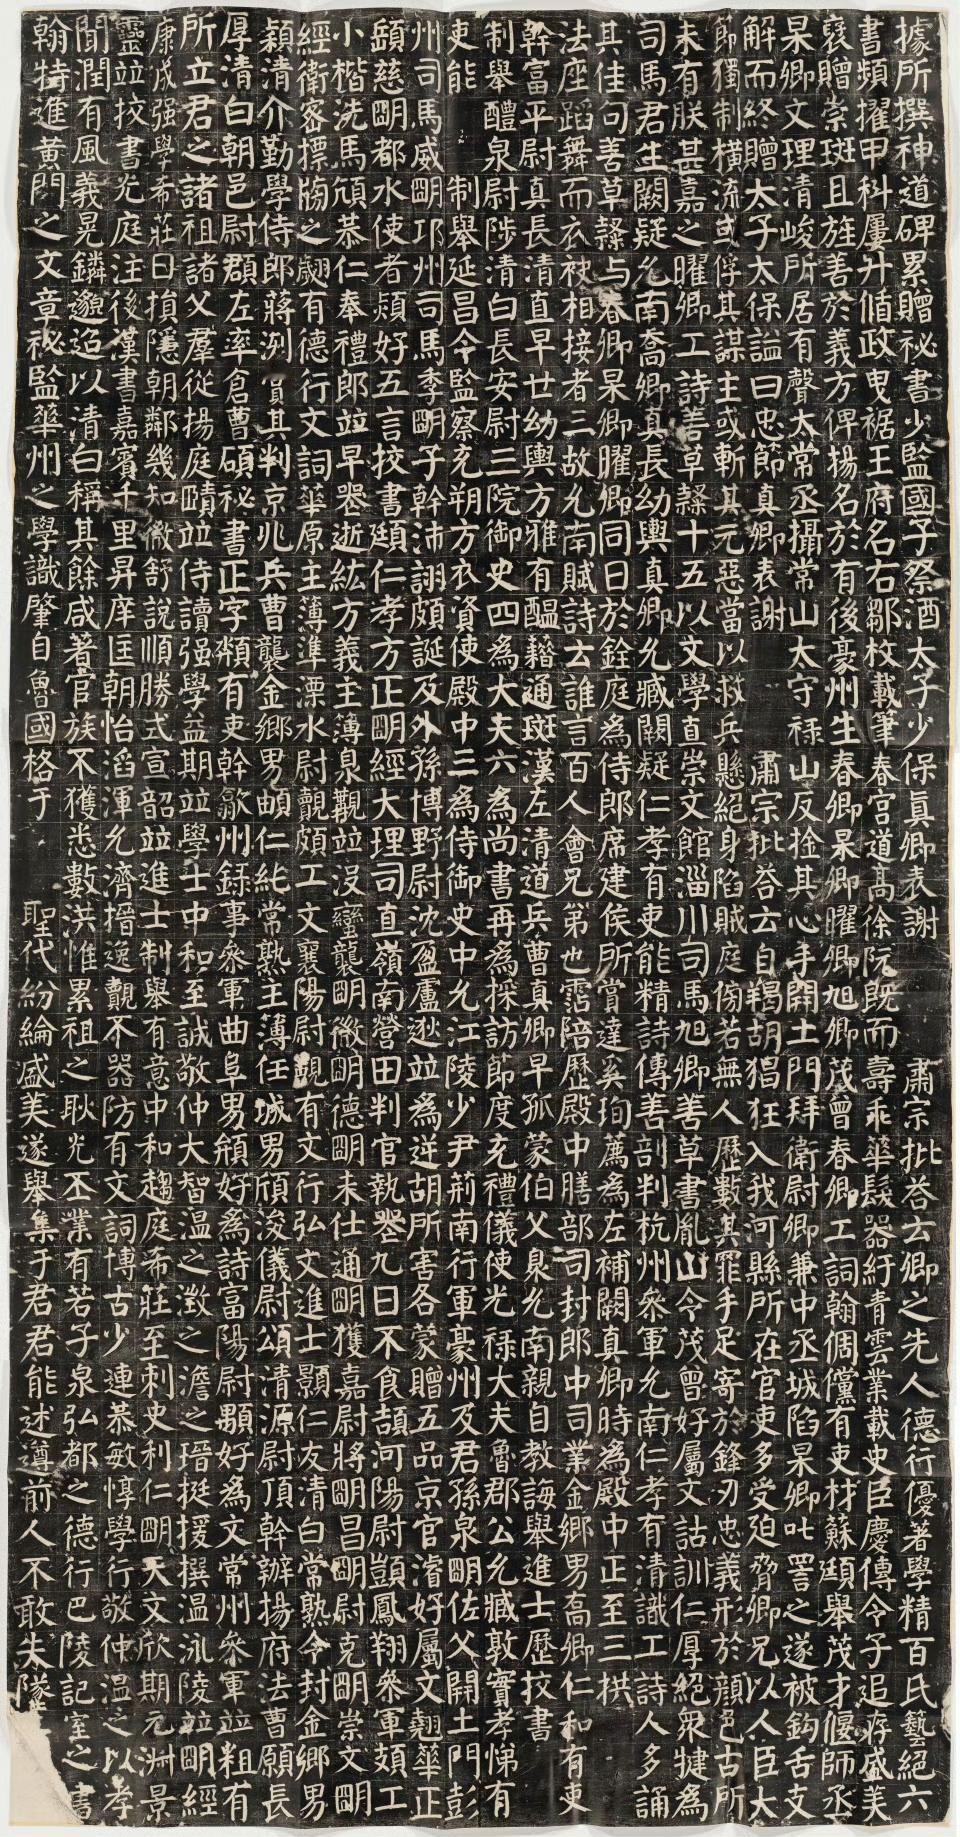 據所撰神道碑累贈祕書少監國子祭酒太子少保真卿表謝 肅宗批荅云卿之先人德行優著學精百氏藝絕六
書頻擢甲科屢升循政曳裾王府名右鄒枚載筆春宮道高徐阮既而壽乖華髮器紆青雲業載史臣慶傳令子追存盛美
褒贈崇班且旌善於義方俾揚名於有後豪州生春卿杲卿曜卿旭卿茂曾春卿工詞翰倜儻有吏材蘇頲舉茂才偃師丞
杲卿文理清峻所居有聲太常丞攝常山太守祿山反捨其心手開土門拜衛尉卿兼中丞城陷杲卿叱詈之遂被鉤舌支
解而終贈太子太保謚曰忠節真卿表謝 肅宗批荅云自羯胡猖狂入我河縣所在官吏多受迫脅卿兄以人臣大
節獨制橫流或俘其謀主或斬其元惡當以救兵懸絕身陷賊庭傍若無人歷數其罪手足寄於鋒刃忠義形於顏色古所
未有朕甚嘉之曜卿工詩善草隸十五以文學直崇文館淄川司馬旭卿善草書胤山令茂曾好屬文詁訓仁厚絕眾犍為
司馬君生闕疑允南喬卿真長幼輿真卿允臧闕疑仁孝有吏能精詩傳善剖判杭州參軍允南仁孝有清識工詩人多誦
其佳句善草隸与春卿杲卿曜卿同日於銓庭為侍郎席建侯所賞達奚珣薦為左補闕真卿時為殿中正至三拱
法座蹈舞而衣被相接者三故允南賦詩云誰言百人會兄弟也霑陪歷殿中膳部司封郎中司業金鄉男喬卿仁和有吏
幹富平尉真長清直早世幼輿方雅有醞藉通班漢左清道兵曹真卿早孤蒙伯父臮允南親自教誨舉進士歷校書
制舉醴泉尉陟清白長安尉三院御史四為大夫六為尚書再為採訪節度充禮儀使光祿大夫魯郡公允臧敦實孝悌有
吏能 制舉延昌令監察充朔方衣資使殿中三為侍御史中允江陵少尹荊南行軍豪州及君孫泉明佐父開土門彭
州司馬威明邛州司馬季明子幹沛詡頗誕及外孫博野尉沈盈盧逖並為逆胡所害各蒙贈五品京官濬好屬文翹華正
頲慈明都水使者頍好五言校書頲仁孝方正明經大理司直嶺南營田判官執喪九日不食頡河陽尉顗鳳翔參軍頍工
小楷洗馬頎恭仁奉禮郎並早喪逝紘方義主簿泉觀並沒蠻襲明徽明德明未仕通明獲嘉尉將明昌明尉克明崇文明
經衛密摽牓之翽有德行文詞華原主簿準漂水尉觀頗工文襄陽尉覿有文行弘文進士顥仁友清白常熟令封金鄉男
潁清介勤學侍郎蔣洌賞其判京兆兵曹襲金鄉男頔仁純常熟主薄任城男頎浚儀尉頌清源尉頂幹辦揚府法曹願長
厚清白朝邑尉顗左率倉曹碩祕書正字頮有吏幹歙州錄事參軍曲阜男頯好為詩富陽尉顒好為文常州參軍並粗有
所立君之諸祖諸父羣從揚庭賾並侍讀强學益期並學士中和至誠敬仲大智溫之澂之澹之瑨挺援撰溫泳陵並明經
康成强學希莊曰損隱朝鄰幾知微舒說順勝式宣韶並進士制舉有意中和趨庭希莊至刺史利仁明天文欣期元淋景
靈並挍書光庭注後漢書嘉賓千里昇庠匡朝怡滔渾允濟搢逸觀不器防有文詞博古少連恭敏惇學行敬仲溫之以孝
聞潤有風義晃鏻邈迢以清白稱其餘咸著官族不獲悉數洪惟累祖之耿光丕業有若子泉弘都之德行巴陵記室之書
翰特進黃門之文章祕監華州之學識肇自魯國格于 聖代紛綸盛美遂舉集于君君能述遵前人不敢失隊